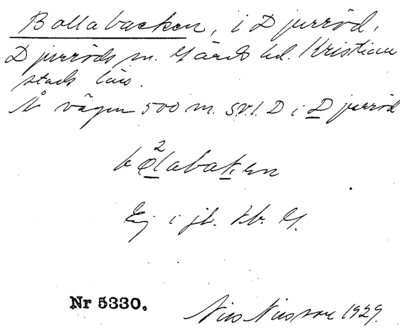 Bollabacken, i Djurröd,
Djurröds sn. Gärds hd. Kristian
stads län.
Å vägen 500 m. SV. l. D i Djurröd
bo²labakǝn
Ej i jb. l.
Nr 5330.
Nils Nilsson 1929.